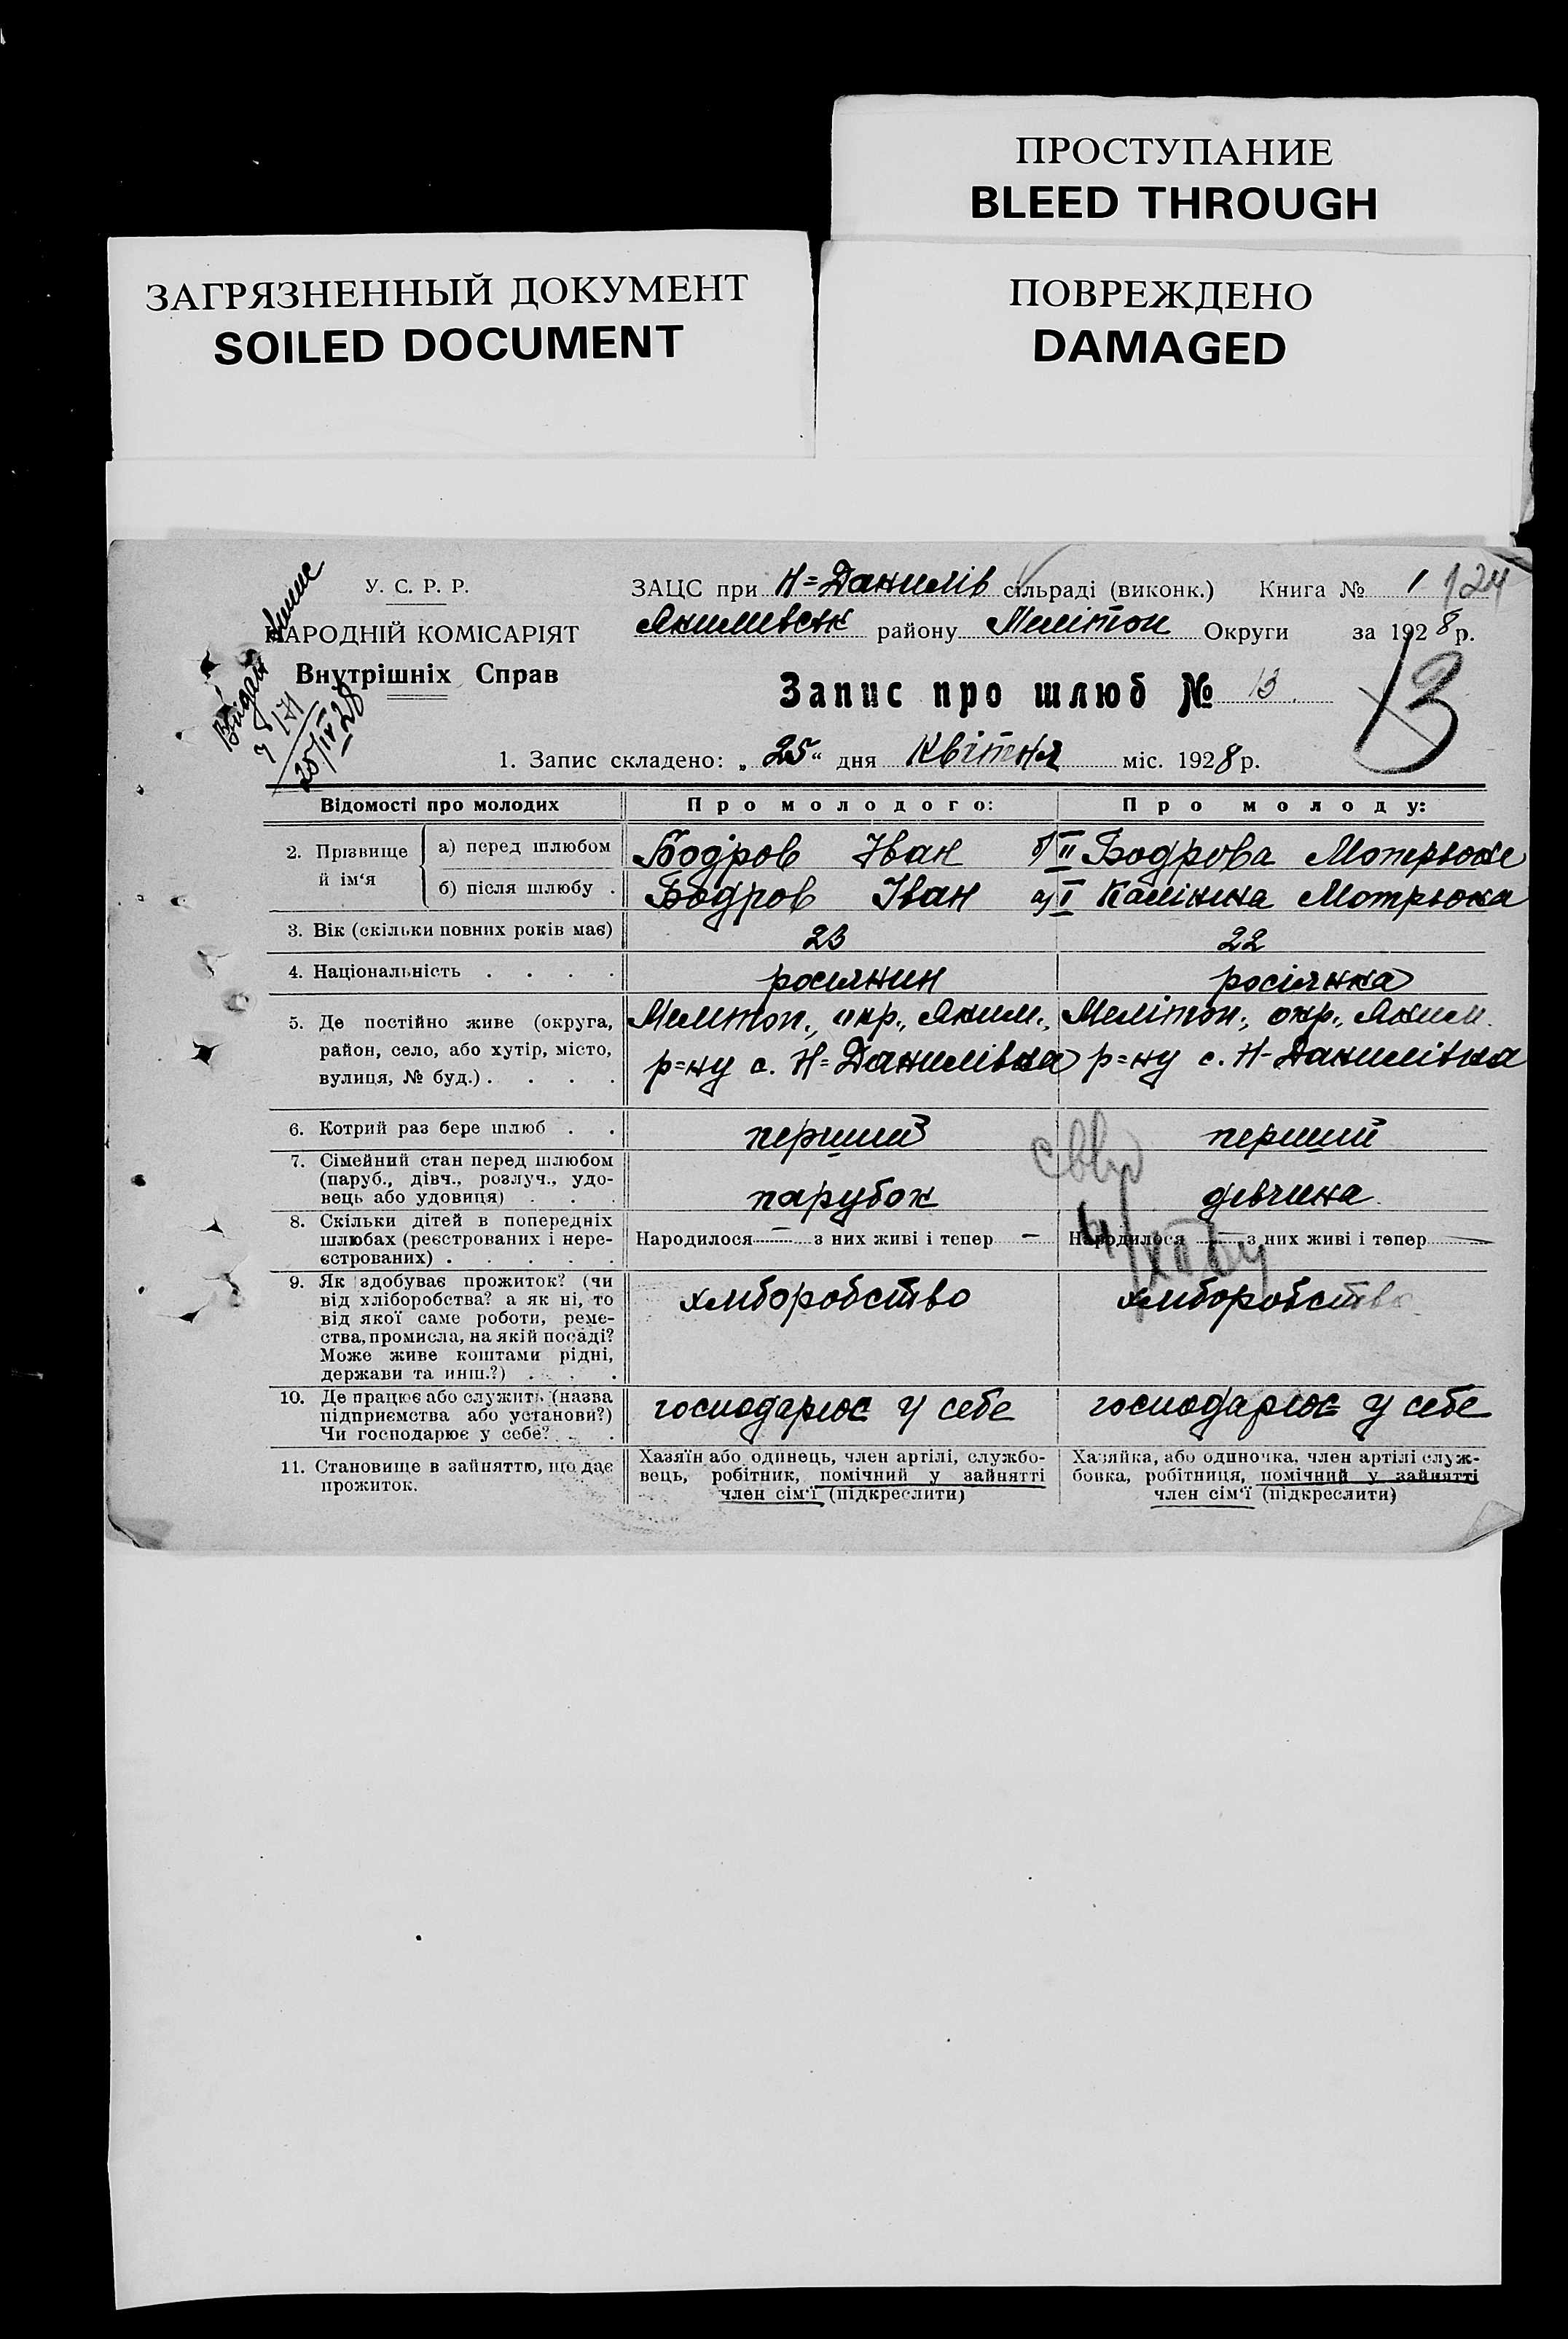 ПРОСТУПАНИЕ
BLEED THROUGH
ЗАГРЯЗНЕННЫЙ ДОКУМЕНТ
SOILED DOCUMENT
ПОВРЕЖДЕНО
DAMAGED
У. С. Р. Р.
НАРОДНІЙ КОМІСАРІЯТ
Внутрішніх Справ
Видан
25/IV 28
ЗАЦС при Н=Данилів сільраді (виконк.) Книга № 1 124
Якимівськ району Меліто́п Округи за 1928 р.
Запис про шлюб № 13.
13
1. Запис складено: „ 25 “ дня Квітня міс. 1928 р.
Відомості про молодих Про молодого: Про молоду:
2. Прізвище й ім‘я
а) перед шлюбом Бодров Іван б) II Бодрова Мотрюка
б) після шлюбу . Бодров Іван а) I Калініна Мотрюка
3. Вік (скільки повних років має) 23 22
4. Національність . . . . росіянин росіянка
5. Де постійно живе (округа, район, село, або хутір, місто, вулиця, № буд.) . . . .
Мелітоп., окр., Аким., р=ну с. Н=Данилівка
Мелітоп., окр., Аким. р=ну с. Н-Данилівка
6. Котрий раз бере шлюб . . перший перший
7. Сімейний стан перед шлюбом
(паруб., дівч., розлуч., удо-
вець або удовиця) . . . парубок дівчина
8. Скільки дітей в попередніх
шлюбах (реєстрованих і нере-
єстрованих) . . . . .
Народилося — з них живі і тепер —
Народилося — з них живі і тепер —
9. Як здобуває прожиток? (чи
від хліборобства? а як ні, то
від якої саме роботи, реме-
ства, промисла, на якій посаді?
Може живе коштами рідні,
держави та инш.?) . . .
хліборобство хліборобство
10. Де працює або служить (назва
підприємства або установи?)
Чи господарює у себе? . .
господарює у себе господарює у себе
11. Становище в зайняттю, що дає
прожиток.
Хазяїн або одинець, член артілі, службо-
вець, робітник, помічний у зайнятті
член сім‘ї (підкреслити)
Хазяйка, або одиночка, член артілі служ-
бовка, робітниця, помічний у зайнятті
член сім‘ї (підкреслити)